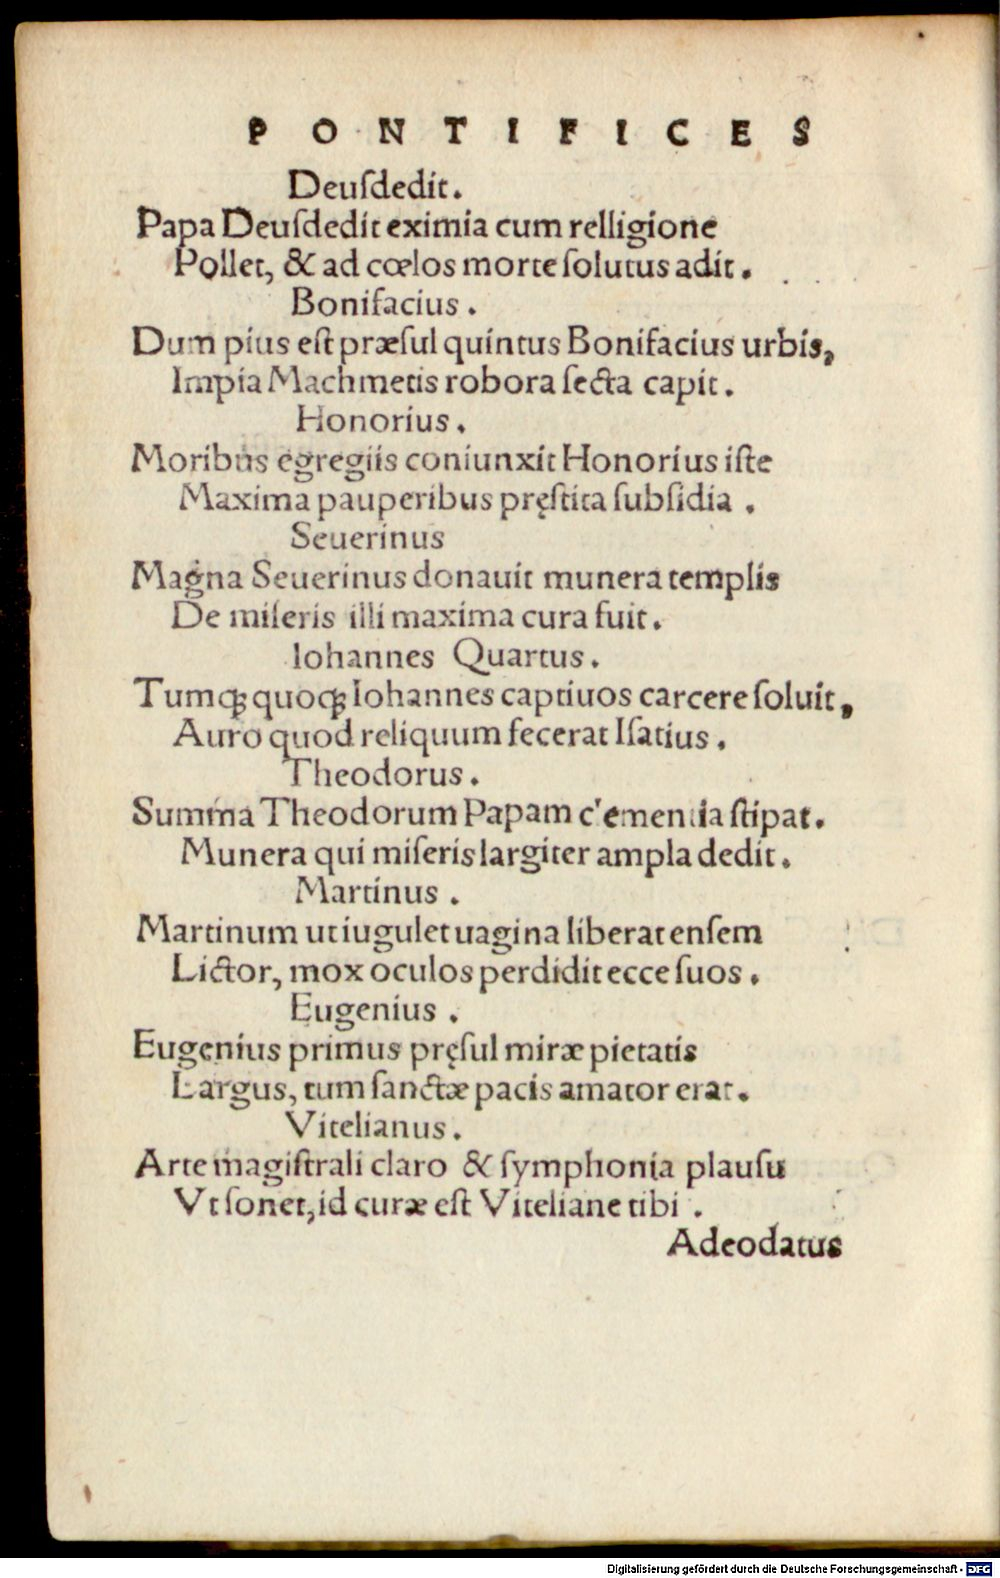 PONTIFICES
Deuſdedit.
Papa Deuſdedit eximia cum relligione
Pollet, & ad cœlos morte ſolutus adit.
Bonifacius.
Dum pius eſt præſul quintus Bonifacius urbis,
Impia Machmetis robora ſecta capit.
Honorius.
Moribus egregiis coniunxit Honorius iſte
Maxima pauperibus pręſtita ſubſidia.
Seuerinus
Magna Seuerinus donauit munera templis
De miſeris illi maxima cura fuit.
Iohannes Quartus.
Tumqꝫ quoqꝫ Iohannes captiuos carcere ſoluit,
Auro quod reliquum fecerat Iſatius.
Theodorus.
Summa Theodorum Papam clementia ſtipat.
Munera qui miſeris largiter ampla dedit.
Martinus.
Martinum ut iugulet uagina liberat enſem
Lictor, mox oculos perdidit ecce ſuos.
Eugenius.
Eugenius primus pręſul miræ pietatis
Largus, tum ſanctæ pacis amator erat.
Vitelianus.
Arte magiſtrali claro & ſymphonia plauſu
Vt ſonet, id curæ eſt Viteliane tibi.
Adeodatus
Digitalisierung gefördert durch die Deutsche Forschungsgemeinschaft - DFG